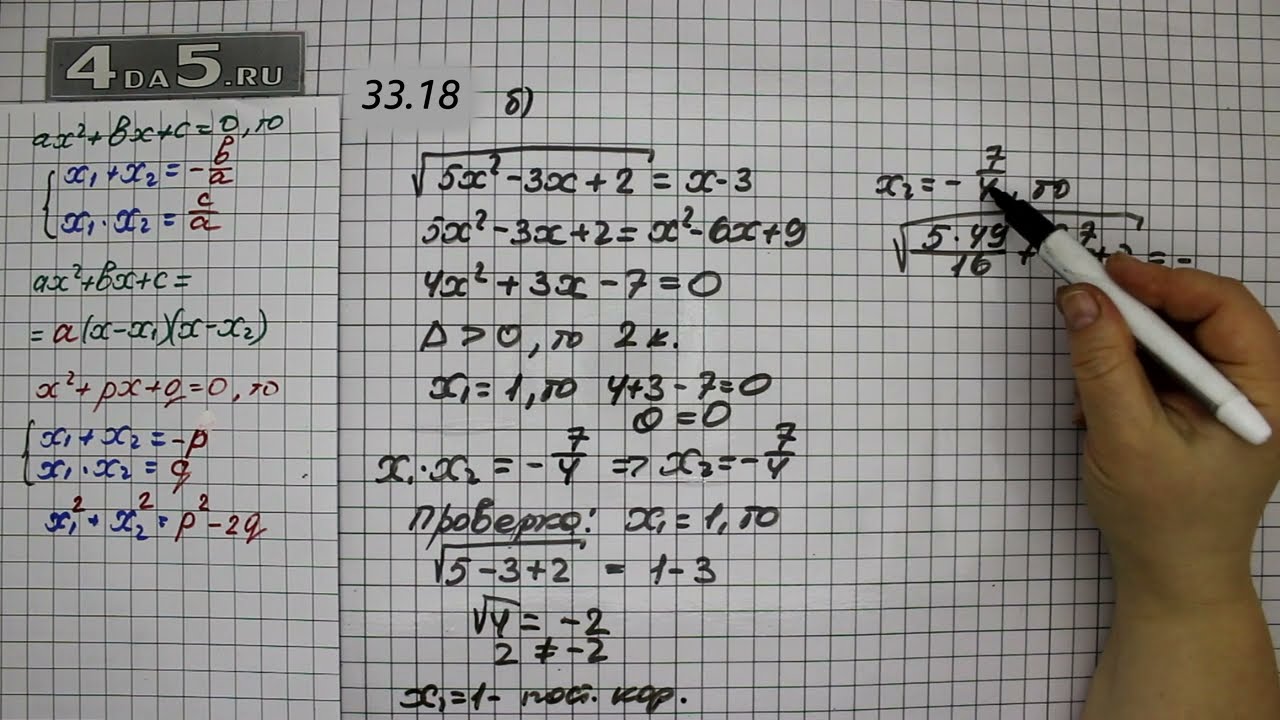 4DA5.RU
ax²+вx+c=0, то
x₁+x₂=-в/a
x₁·x₂=c/a
ax²+вx+c=
=a(x-x₁)(x-x₂)
x²+px+q=0, то
x₁+x₂=-p
x₁·x₂=q
x₁²+x₂²=p²-2q
33.18
б)
√(5x²-3x+2)=x-3
5x²-3x+2=x²-6x+9
4x²+3x-7=0
Δ>0, то 2к.
x₁=1, то 4+3-7=0
0=0
x₁·x₂=-7/4 ⇒ x₂=-7/4
Проверка: x₁=1, то
√(5-3+2) = 1-3
√4 = -2
2 ≠ -2
x₁=1- пост. кор.
x₂=-7/4, то
√(5·49/16 + 7 + = -